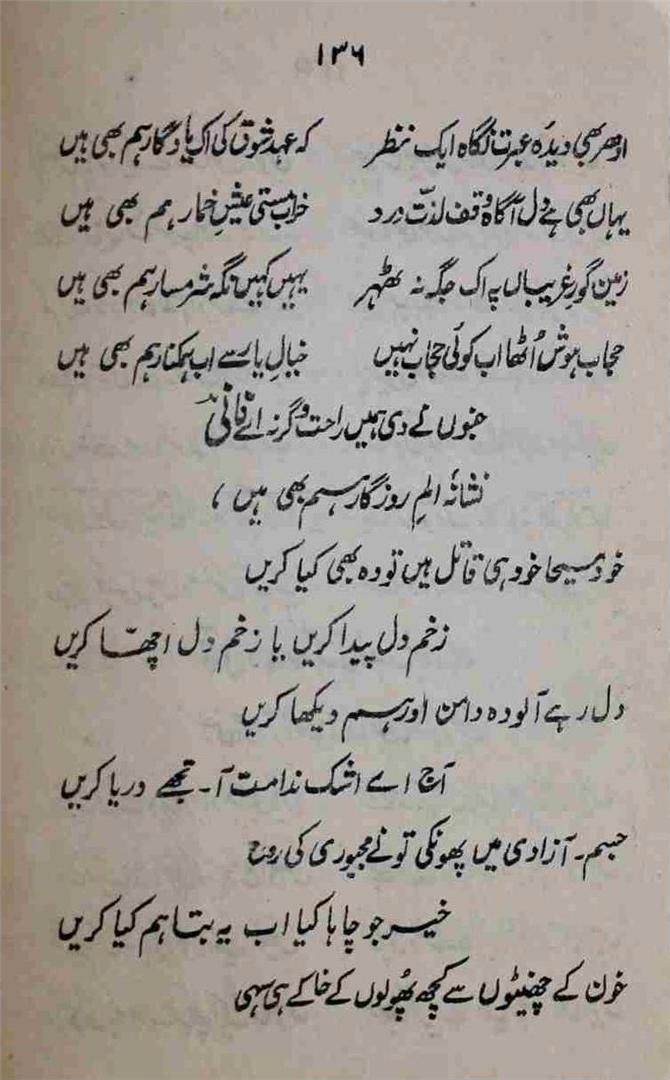 ۱۳۶
ادھر بھی دیدۂ عبرت نگاہ ایک نظر کہ عہد شوق کی اک یادگار ہم بھی ہیں
یہاں بھی ہے دل آگاہ وقف لذت درد خراب مستی عیش خمار ہم بھی ہیں
زمین گور غریباں پہ اک جگہ نہ ٹھہر یہیں کہیں نگہ شرمسار ہم بھی ہیں
حجاب ہوش اُٹھا اب کوئی حجاب نہیں خیال یار سے اب ہمکنار ہم بھی ہیں
جنوں نے دی ہمیں راحت وگرنہ اے فانیؔ
نشانۂ الم روزگار ہم بھی ہیں ،
خود مسیحا خود ہی قاتل ہیں تو وہ بھی کیا کریں
زخم دل پیدا کریں یا زخم دل اچھّا کریں
دل رہے آلودہ دامن اور ہم دیکھا کریں
آج اے اشک ندامت آ۔ تجھے دریا کریں
جسم۔ آزادی میں پھونکی تو نے مجبوری کی روح
خیر جو چاہا کیا اب یہ بتا ہم کیا کریں
خون کے چھینٹوں سے کچھ پھُولوں کے خاکے ہی سہی